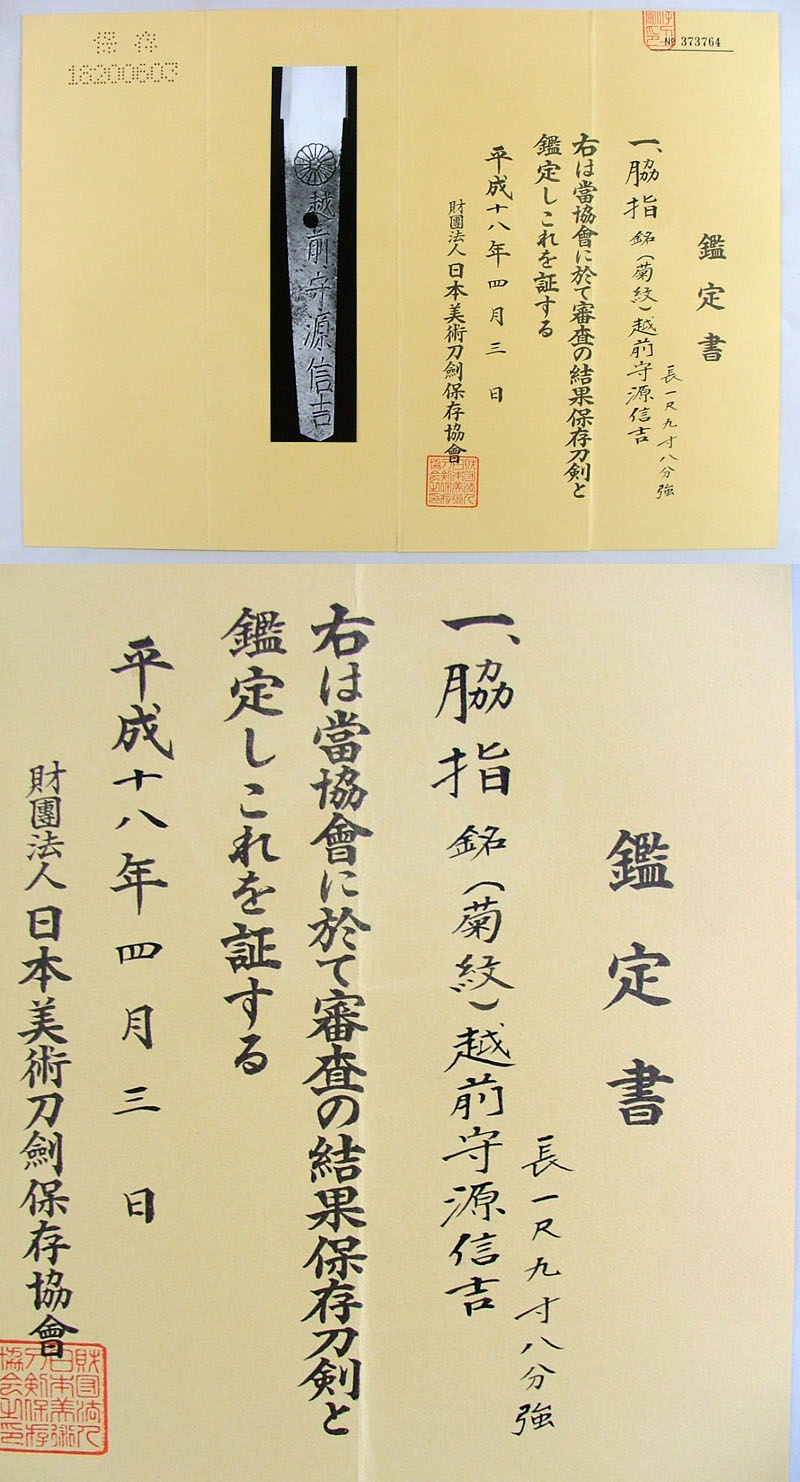 保存
18200603
№ 373764
鑑定書
一、脇指 銘(菊紋)越前守源信吉
長一尺九寸八分強
右は當協會に於て審査の結果保存刀剣と
鑑定しこれを証する
平成十八年四月三日
財團法人日本美術刀劍保存協會
越前守源信吉
鑑定書
長一尺九寸八分強
一、脇指 銘(菊紋)越前守源信吉
右は當協會に於て審査の結果保存刀剣と
鑑定しこれを証する
平成十八年四月三日
財團法人日本美術刀劍保存協會